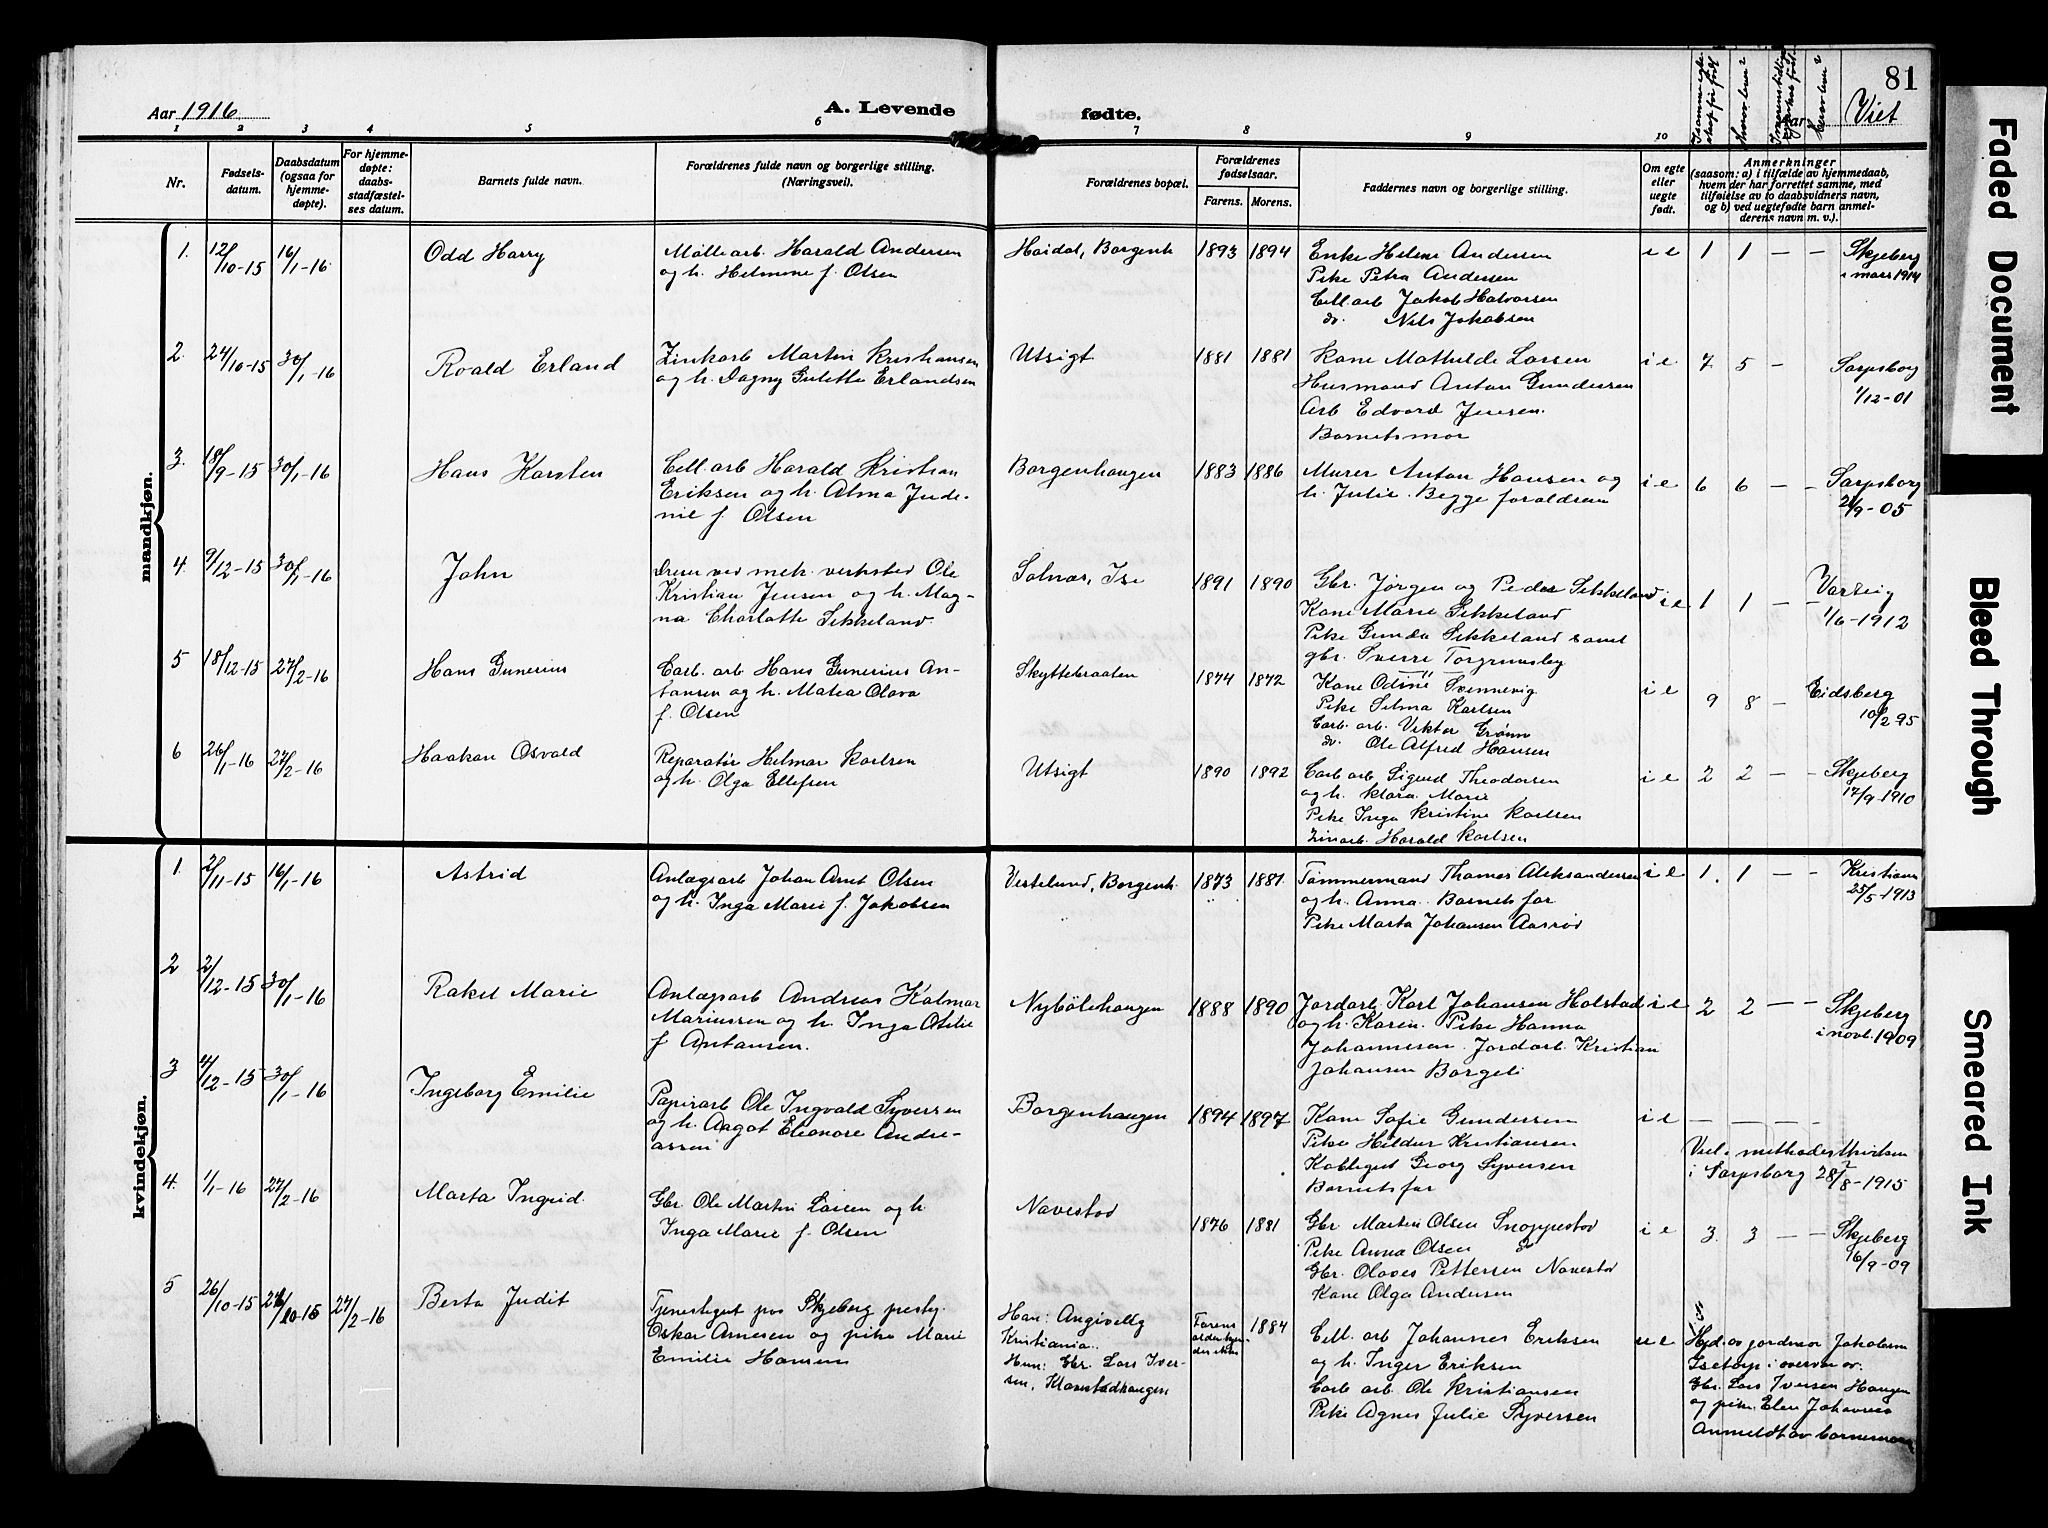 81
Aar 1916
A. Levende fødte.
Aar Viet
1 2 3 4 5 6 7 8 9 10
Nr.
Fødsels-
datum.
Daabsdatum
(ogsaa for
hjemme-
døpte).
For hjemme-
døpte:
daabs-
stadfæstel-
ses datum.
Barnets fulde navn.
Forældrenes fulde navn og borgerlige stilling.
(Næringsvei).
Forældrenes bopæl.
Forældrenes
fødselsaar.
Farens. Morens.
Faddernes navn og borgerlige stilling.
Om egte
eller
uegte
født.
Anmerkninger
(saasom: a) i tilfælde av hjemmedaab,
hvem der har forrettet samme, med
tilføielse av to daabsvidners navn,
og b) ved uegtefødte barn anmel-
derens navn m. v.).
mandkjøn.
1. 12/10-15 16/1-16. Odd Harry
Møllearb. Harald Andersen
og h. Helmine f. Olsen
Haidal, Borgenh 1893 1894
Enke Helene Andersen
Pike Petra Andersen
Cell. arb Jakob Halvorsen
do. Nils Jakobsen
i e 1 1 – – Skjeberg
i mars 1914
2. 24/10-15 30/1-16 Roald Erland
Zinkarb Martin Kristiansen
og h. Dagny Gulette Erlandsen
Utsigt 1881 1881
Kone Mathilde Larsen
Husmand Anton Gundersen
Arb Edvard Jensen.
Barnets mor
i e 7 5 – Sarpsborg
1/12-01
3. 18/9-15 30/1-16 Hans Karsten
Cell. arb Harald Kristian
Eriksen og h. Alma Jude-
nie f. Olsen
Borgenhaugen 1883 1886
Murer Anton Hansen og
h. Julie. Begge forældrene
i e 6 6 – – Sarpsborg
/9-05
4. 9/12-15 30/1-16 John
Dreier ved mek. verksted Ole
Kristian Jensen og h. Mag-
na Charlotte Sikkeland.
Solnæs, Ise 1891 1890
Gbr. Jørgen og Peder Sikkeland
Kone Marie Sikkeland
Pike Gunda Sikkeland samt
gbr. Sverre Torgrimsby
i e 1 1 – – Varteig
1/6-1912
5 18/12-15 27/2-16 Hans Gunerius
Carb. arb Hans Gunerius An-
tonsen og h. Matea Olava
f. Olsen
Skyttebraaten 1874 1872
Kone Odine Svennevig
Pike Selma Karlsen
Carb. arb. Viktor Grønn
do. Ole Alfred Hansen
i e 9 8 – Eidsberg
10/2 95
6 26/1-16 27/2-16 Haakon Osvald
Reparatør Helmar Karlsen
og h. Olga Ellefsen
Utsigt 1890 1892
Carb arb Sigurd Theodorsen
og h. Klara Marie
Pike Inga Kristine Karlsen
Zinarb. Harald Karlsen
i e 2 2 – – Skjeberg
17/9-1910
kvindekjøn.
1. 2/11-15 16/1-16 Astrid
Anlægsarb Johan Arnt Olsen
og h. Inga Marie f. Jakobsen
Vestelund, Borgenh. 1873 1881
Tømmermand Thomas Aleksandersen
og h. Anna. Barnets far
Pike Marta Johansen Aasrød
i e 1. 1 – – Kristiania
25/5-1913
2 2/12-15 30/1-16 Rakel Marie
Anlægsarb Andreas Kalmar
Mariussen og h. Inga Otilie
f Antonsen.
Nybølehaugen 1888 1890
Jordarb. Karl Johansen Holstad
og h. Karen. Pike Hanna
Johannesen. Jordarb. Kristian
Johansen Borgeli
i e 2 2 – – Skjeberg
i novb. 1909
3 4/12-15 30/1-16 Ingeborg Emilie
Papirarb Ole Ingvald Syversen
og h. Aagot Eleonore Andre-
assen
Borgenhaugen 1894 1897
Kone Sofie Gundersen
Pike Hildur Kristiansen
Kableget Georg Syversen
Barnets far
i e – – – –
Viet i methodistkirken
i Sarpsborg 28/8-1915
4. 1/1-16 27/2-16 Marta Ingrid.
Gbr Ole Martin Larsen og h
Inga Marie f. Olsen
Navestad 1876 1881
Gbr Martin Olsen Snoppestad
Pike Anna Olsen do
Gbr. Olaves Pettersen Navestad
Kone Olga Andersen
i e 3. 3 – – Skjeberg
16/9-09
5 26/10-15 26/10-15 27/2-16 Berta Judit
Tjenestegut paa Skjeberg prestg.
Oskar Arnesen og pike Marie
Emilie Hansen
Han: Angivelig
Kristiania.
Hun: Gbr Lars Iver-
sen, Klavestadhaugen
Farens
alder kjen-
des ikke
1884
Cell. arb Johannes Eriksen
og h. Inger Eriksen
Carb arb. Ole Kristiansen
Pike Agnes Julie Syversen
u e
Hjd. av jordmor Jakobsen
Isetorp i overvær av:
Gbr. Lars Iversen Haugen
og pike Elen Johansen
Anmeldt av barnemoren
Faded Document
Bleed Through
Smeared Ink